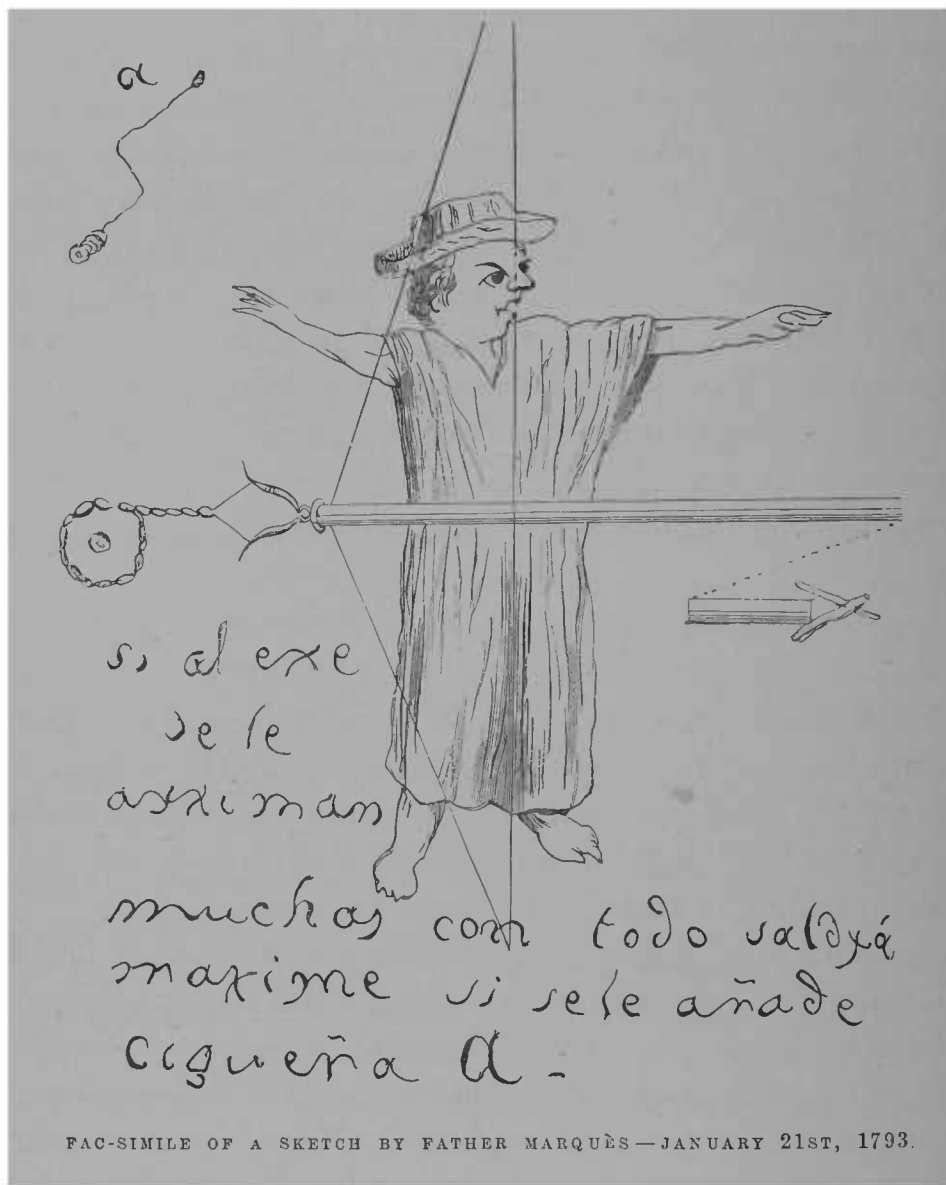 a
si al exe
se le
arriman
muchos com todo saldrá
maxime si se le añade
cigueña a -
FAC-SIMILE OF A SKETCH BY FATHER MARQUÈS — JANUARY 21ST, 1793.